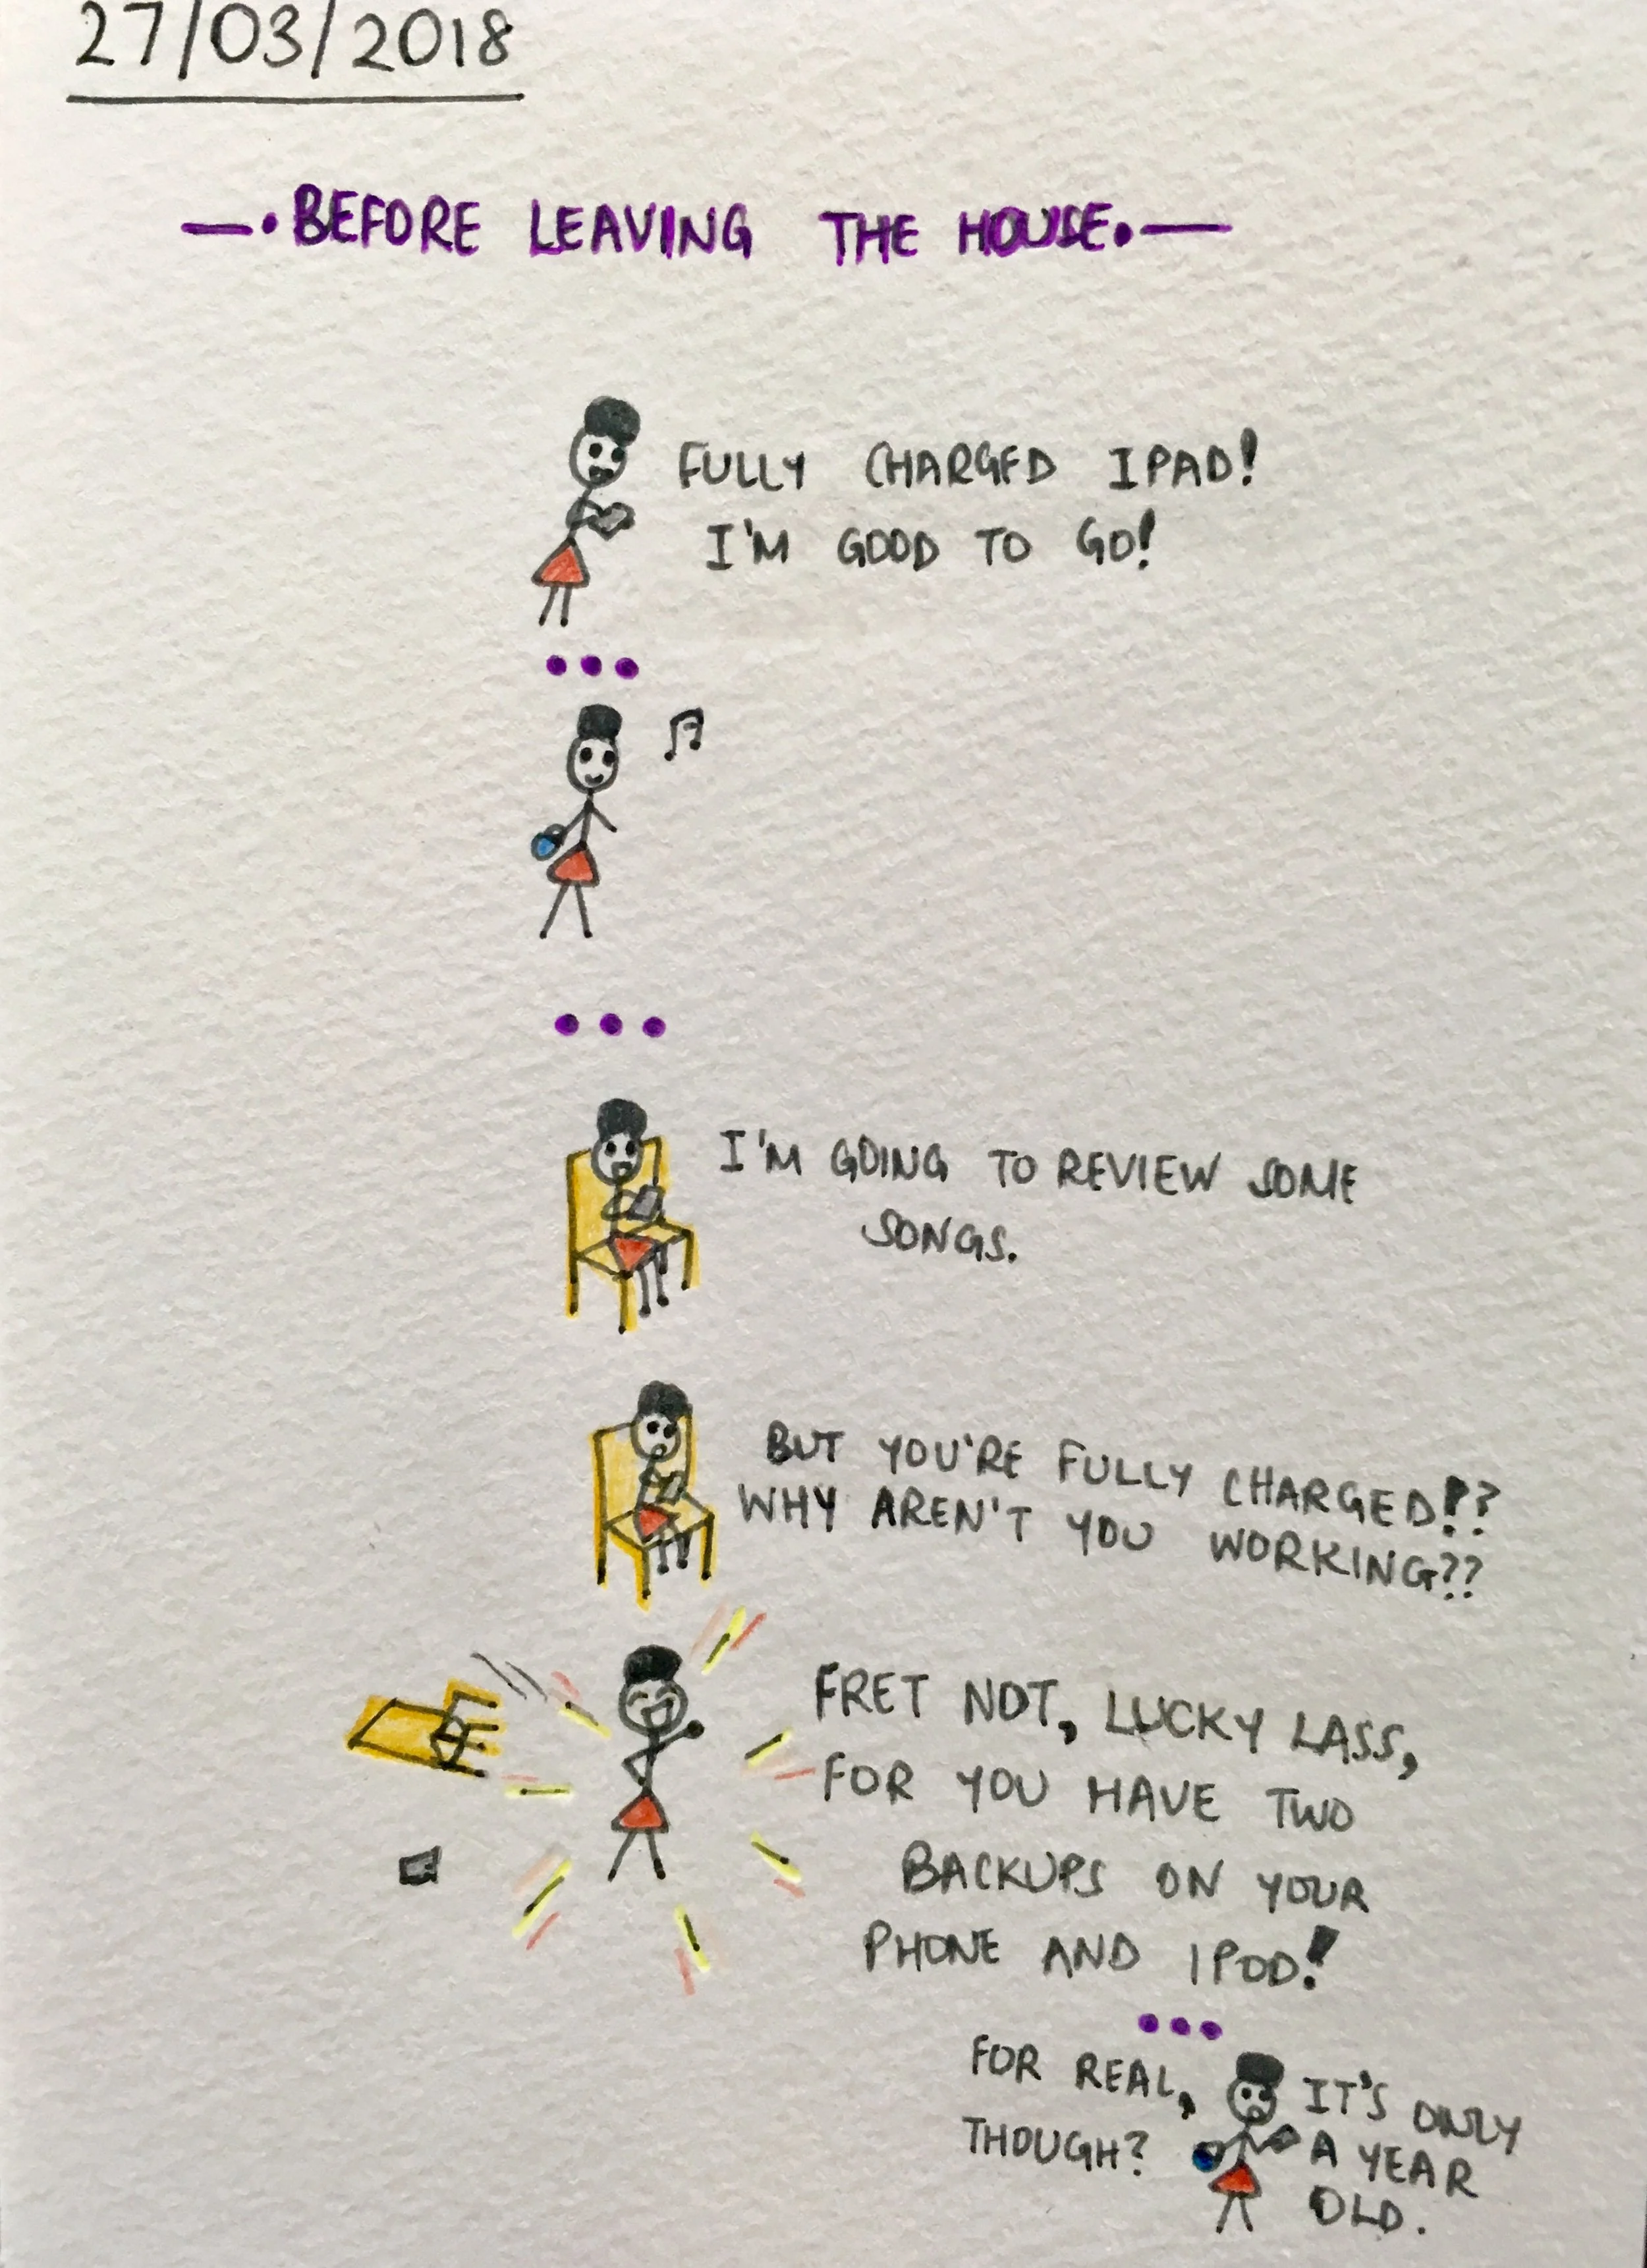 27/03/2018
—•BEFORE LEAVING THE HOUSE•—
FULLY CHARGED IPAD!
I'M GOOD TO GO!
I'M GOING TO REVIEW SOME
SONGS.
BUT YOU'RE FULLY CHARGED!??
WHY AREN'T YOU WORKING??
FRET NOT, LUCKY LASS,
FOR YOU HAVE TWO
BACKUPS ON YOUR
PHONE AND IPOD!
FOR REAL,
THOUGH?
IT'S ONLY
A YEAR
OLD.